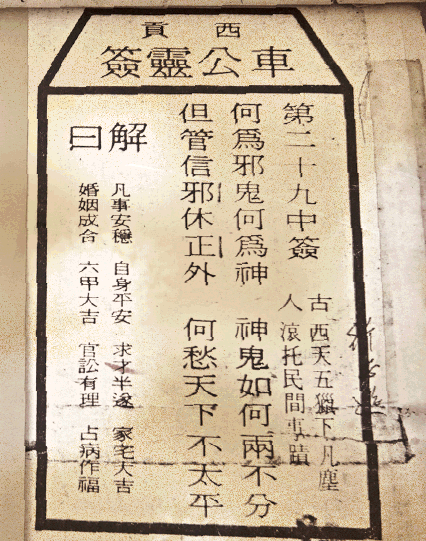 西貢
車公靈簽
第二十九中簽
古人
西天五獵下凡塵
滾托民間事蹟
何爲邪鬼何爲神 神鬼如何兩不分
但管信邪休正外 何愁天下不太平
解曰
凡事安穩 自身平安 求才半遂 家宅大吉
婚姻成合 六甲大吉 官訟有理 占病作福